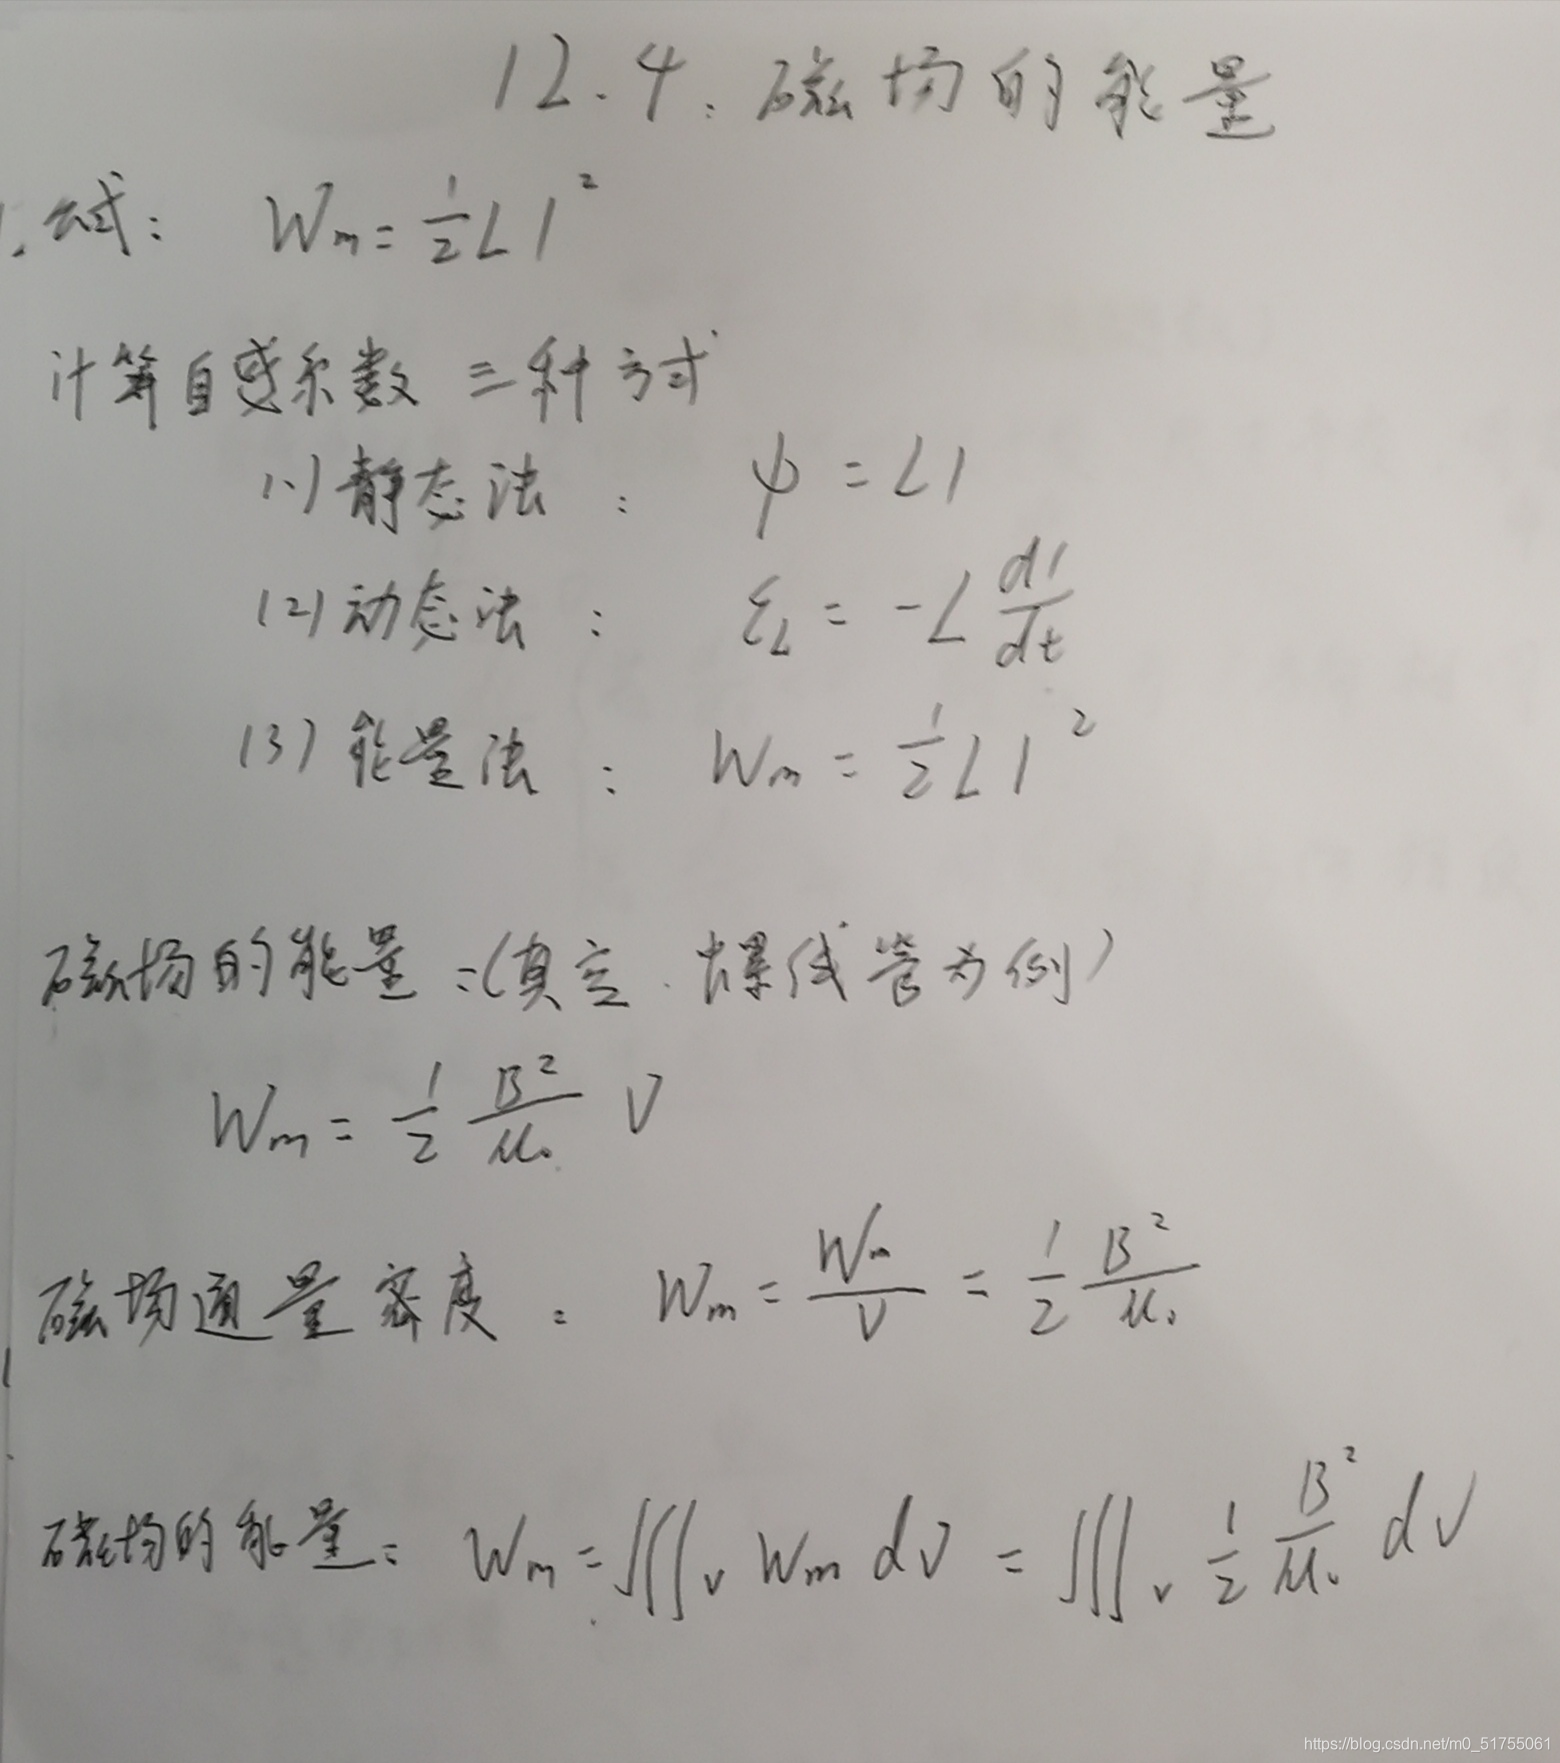 12.4. 磁场的能量
1. 公式: Wm = 1/2 L I²
计算自感系数三种方式
(1) 静态法: ψ = LI
(2) 动态法: ε_L = -L dI/dt
(3) 能量法: Wm = 1/2 L I²
磁场的能量:(真空.螺线管为例)
Wm = 1/2 B²/μ₀ V
磁场通量密度: Wm = Wm/V = 1/2 B²/μ₀
磁场的能量: Wm = ∭_V Wm dV = ∭_V 1/2 B²/μ₀ dV
https://blog.csdn.net/m0_51755061